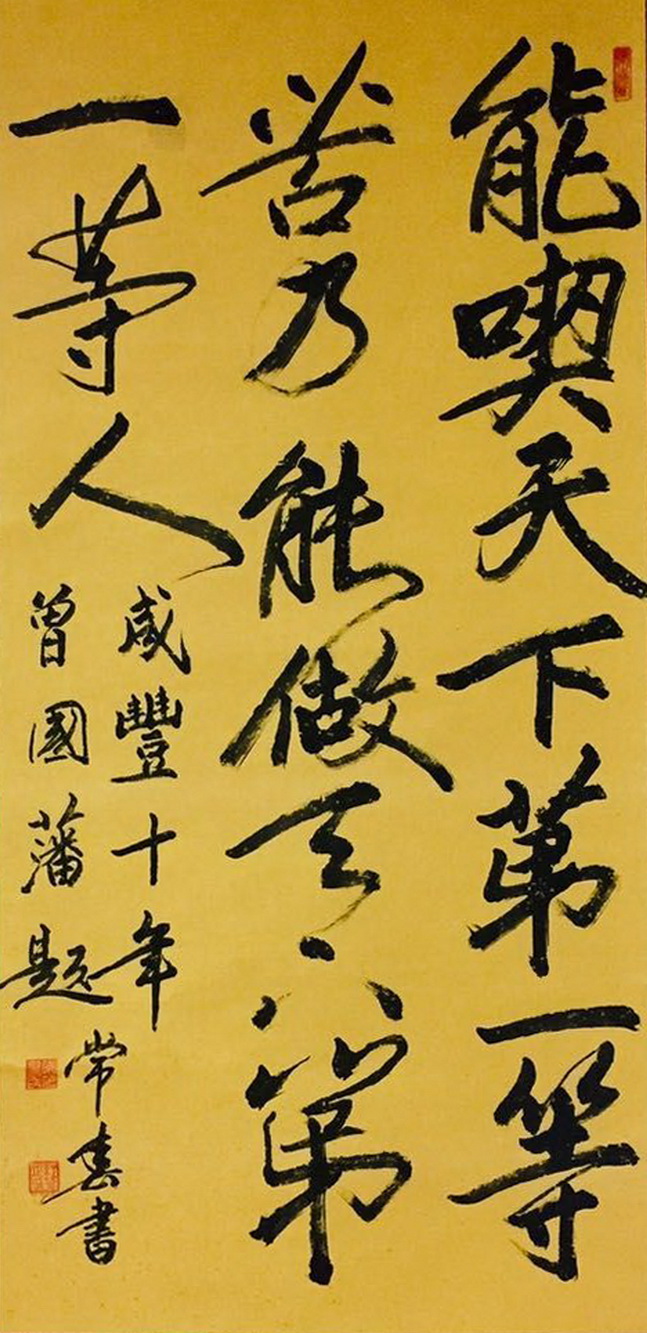 能喫天下第一等
苦乃能做天下第
一等人
咸豐十年
曾國藩題
常春書